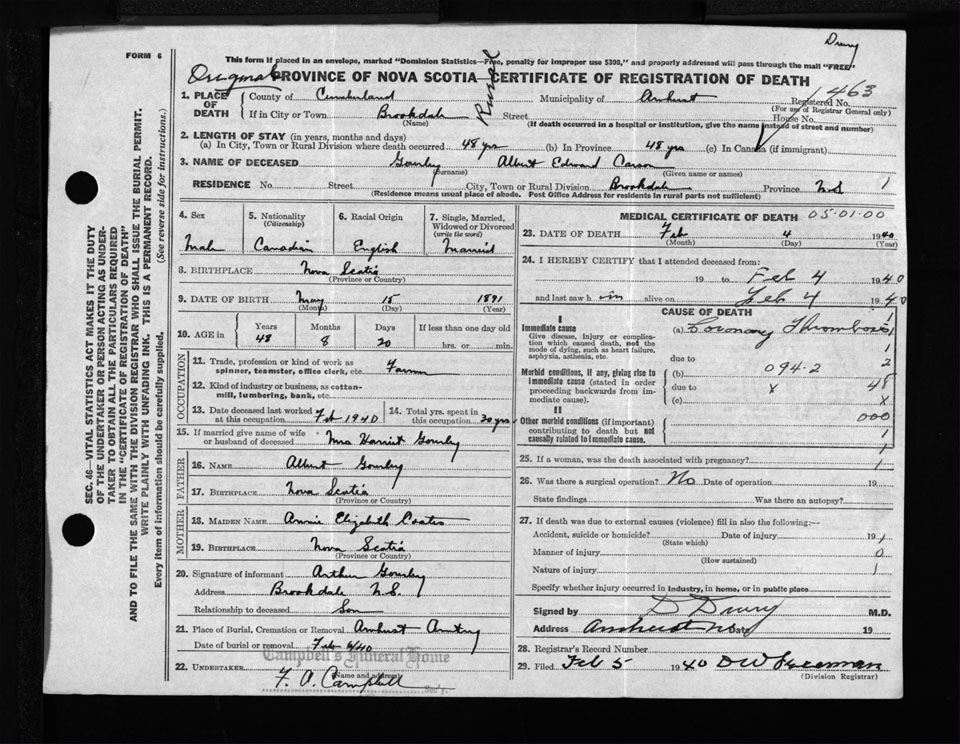 Drury
FORM 6
This form if placed in an envelope, marked "Dominion Statistics—Free, penalty for improper use $300," and properly addressed will pass through the mail "FREE"
Original PROVINCE OF NOVA SCOTIA—CERTIFICATE OF REGISTRATION OF DEATH
Rural
463
1. PLACE OF DEATH
County of Cumberland Municipality of Amherst Registered No.
(For use of Registrar General only)
If in City or Town Brookdale Street House No.
(Name) (If death occurred in a hospital or institution, give the name instead of street and number)
2. LENGTH OF STAY (in years, months and days)
(a) In City, Town or Rural Division where death occurred 48 yrs (b) In Province 48 yrs (c) In Canada (if immigrant)
3. NAME OF DECEASED Gourley Albert Edward Carson
(Surname) (Given name or names)
RESIDENCE No. Street City, Town or Rural Division Brookdale Province N.S 1
(Residence means usual place of abode. Post Office Address for residents in rural parts not sufficient)
4. Sex Male
5. Nationality (Citizenship) Canadian
6. Racial Origin English
7. Single, Married, Widowed or Divorced (write the word) Married
8. BIRTHPLACE Nova Scotia
(Province or County)
9. DATE OF BIRTH May 15 1891
(Month) (Day) (Year)
10. AGE in Years Months Days If less than one day old
48 8 20 hrs. or min.
OCCUPATION
11. Trade, profession or kind of work as spinner, teamster, office clerk, etc. Farmer
12. Kind of industry or business, as cotton-mill, lumbering, bank, etc.
13. Date deceased last worked at this occupation Feb 1940
14. Total yrs. spent in this occupation 30 yrs
15. If married give name of wife or husband of deceased Mrs Harriet Gourley
FATHER
16. NAME Albert Gourley
17. BIRTHPLACE Nova Scotia
(Province or Country)
MOTHER
18. MAIDEN NAME Annie Elizabeth Coates
19. BIRTHPLACE Nova Scotia
(Province or Country)
20. Signature of informant Arthur Gourley
Address Brookdale N.S.
Relationship to deceased Son
21. Place of Burial, Cremation or Removal Amherst
Date of burial or removal Feb 6/40
Campbell's Funeral Home
22. UNDERTAKER F. A. Campbell
(Name and address)
MEDICAL CERTIFICATE OF DEATH 05-01-00
23. DATE OF DEATH Feb 4 1940
(Month) (Day) (Year)
24. I HEREBY CERTIFY that I attended deceased from:
19 to Feb 4 1940
and last saw h im alive on Feb 4 1940
CAUSE OF DEATH
I
Immediate cause (a) Coronary Thrombosis 1
Give disease, injury or complication which caused death, not the mode of dying, such as heart failure, asphyxia, asthenia, etc.
1
due to 2
Morbid conditions, if any, giving rise to immediate cause (stated in order proceeding backwards from immediate cause).
(b) 094-2
due to x 48
(c) x
II
000
Other morbid conditions (if important) contributing to death but not causally related to immediate cause.
1
1
25. If a woman, was the death associated with pregnancy? 1
26. Was there a surgical operation? No Date of operation 19
State findings Was there an autopsy?
27. If death was due to external causes (violence) fill in also the following:—
Accident, suicide or homicide? Date of injury 19 1
(State which)
Manner of injury 0
(How sustained)
Nature of injury 1
Specify whether injury occurred in industry, in home, or in public place
Signed by D Drury M.D.
Address Amherst NS Date 19
28. Registrar's Record Number
29. Filed Feb 5 1940 DW Freeman
(Division Registrar)
SEC. 46—VITAL STATISTICS ACT MAKES IT THE DUTY
OF THE UNDERTAKER OR PERSON ACTING AS UNDER-
TAKER TO OBTAIN ALL THE PARTICULARS REQUIRED
IN THE "CERTIFICATE OF REGISTRATION OF DEATH"
AND TO FILE THE SAME WITH THE DIVISION REGISTRAR WHO SHALL ISSUE THE BURIAL PERMIT.
WRITE PLAINLY WITH UNFADING INK. THIS IS A PERMANENT RECORD.
Every item of information should be carefully supplied. (See reverse side for instructions.)